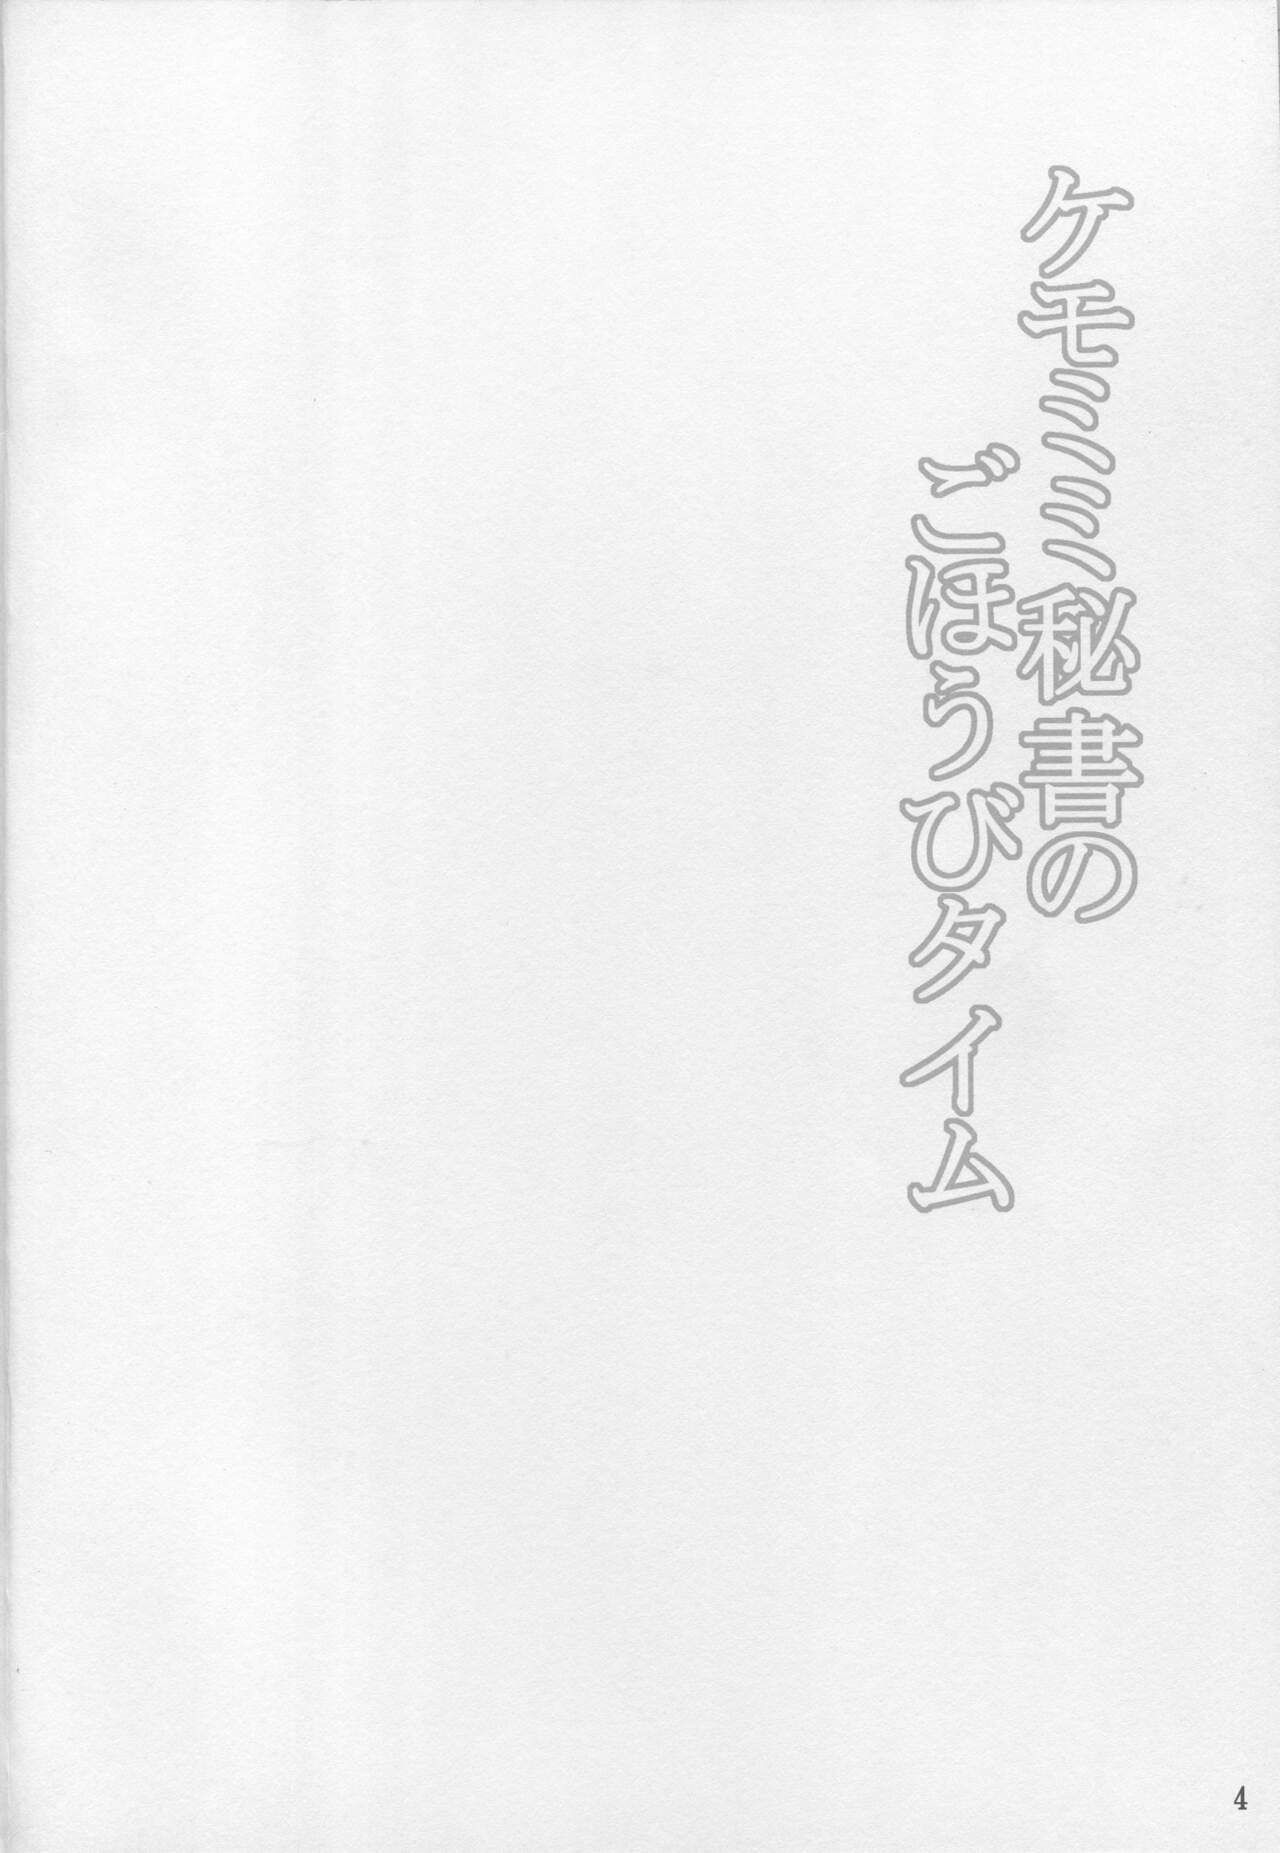 ケモミミ秘書の
ごほうびタイム
4